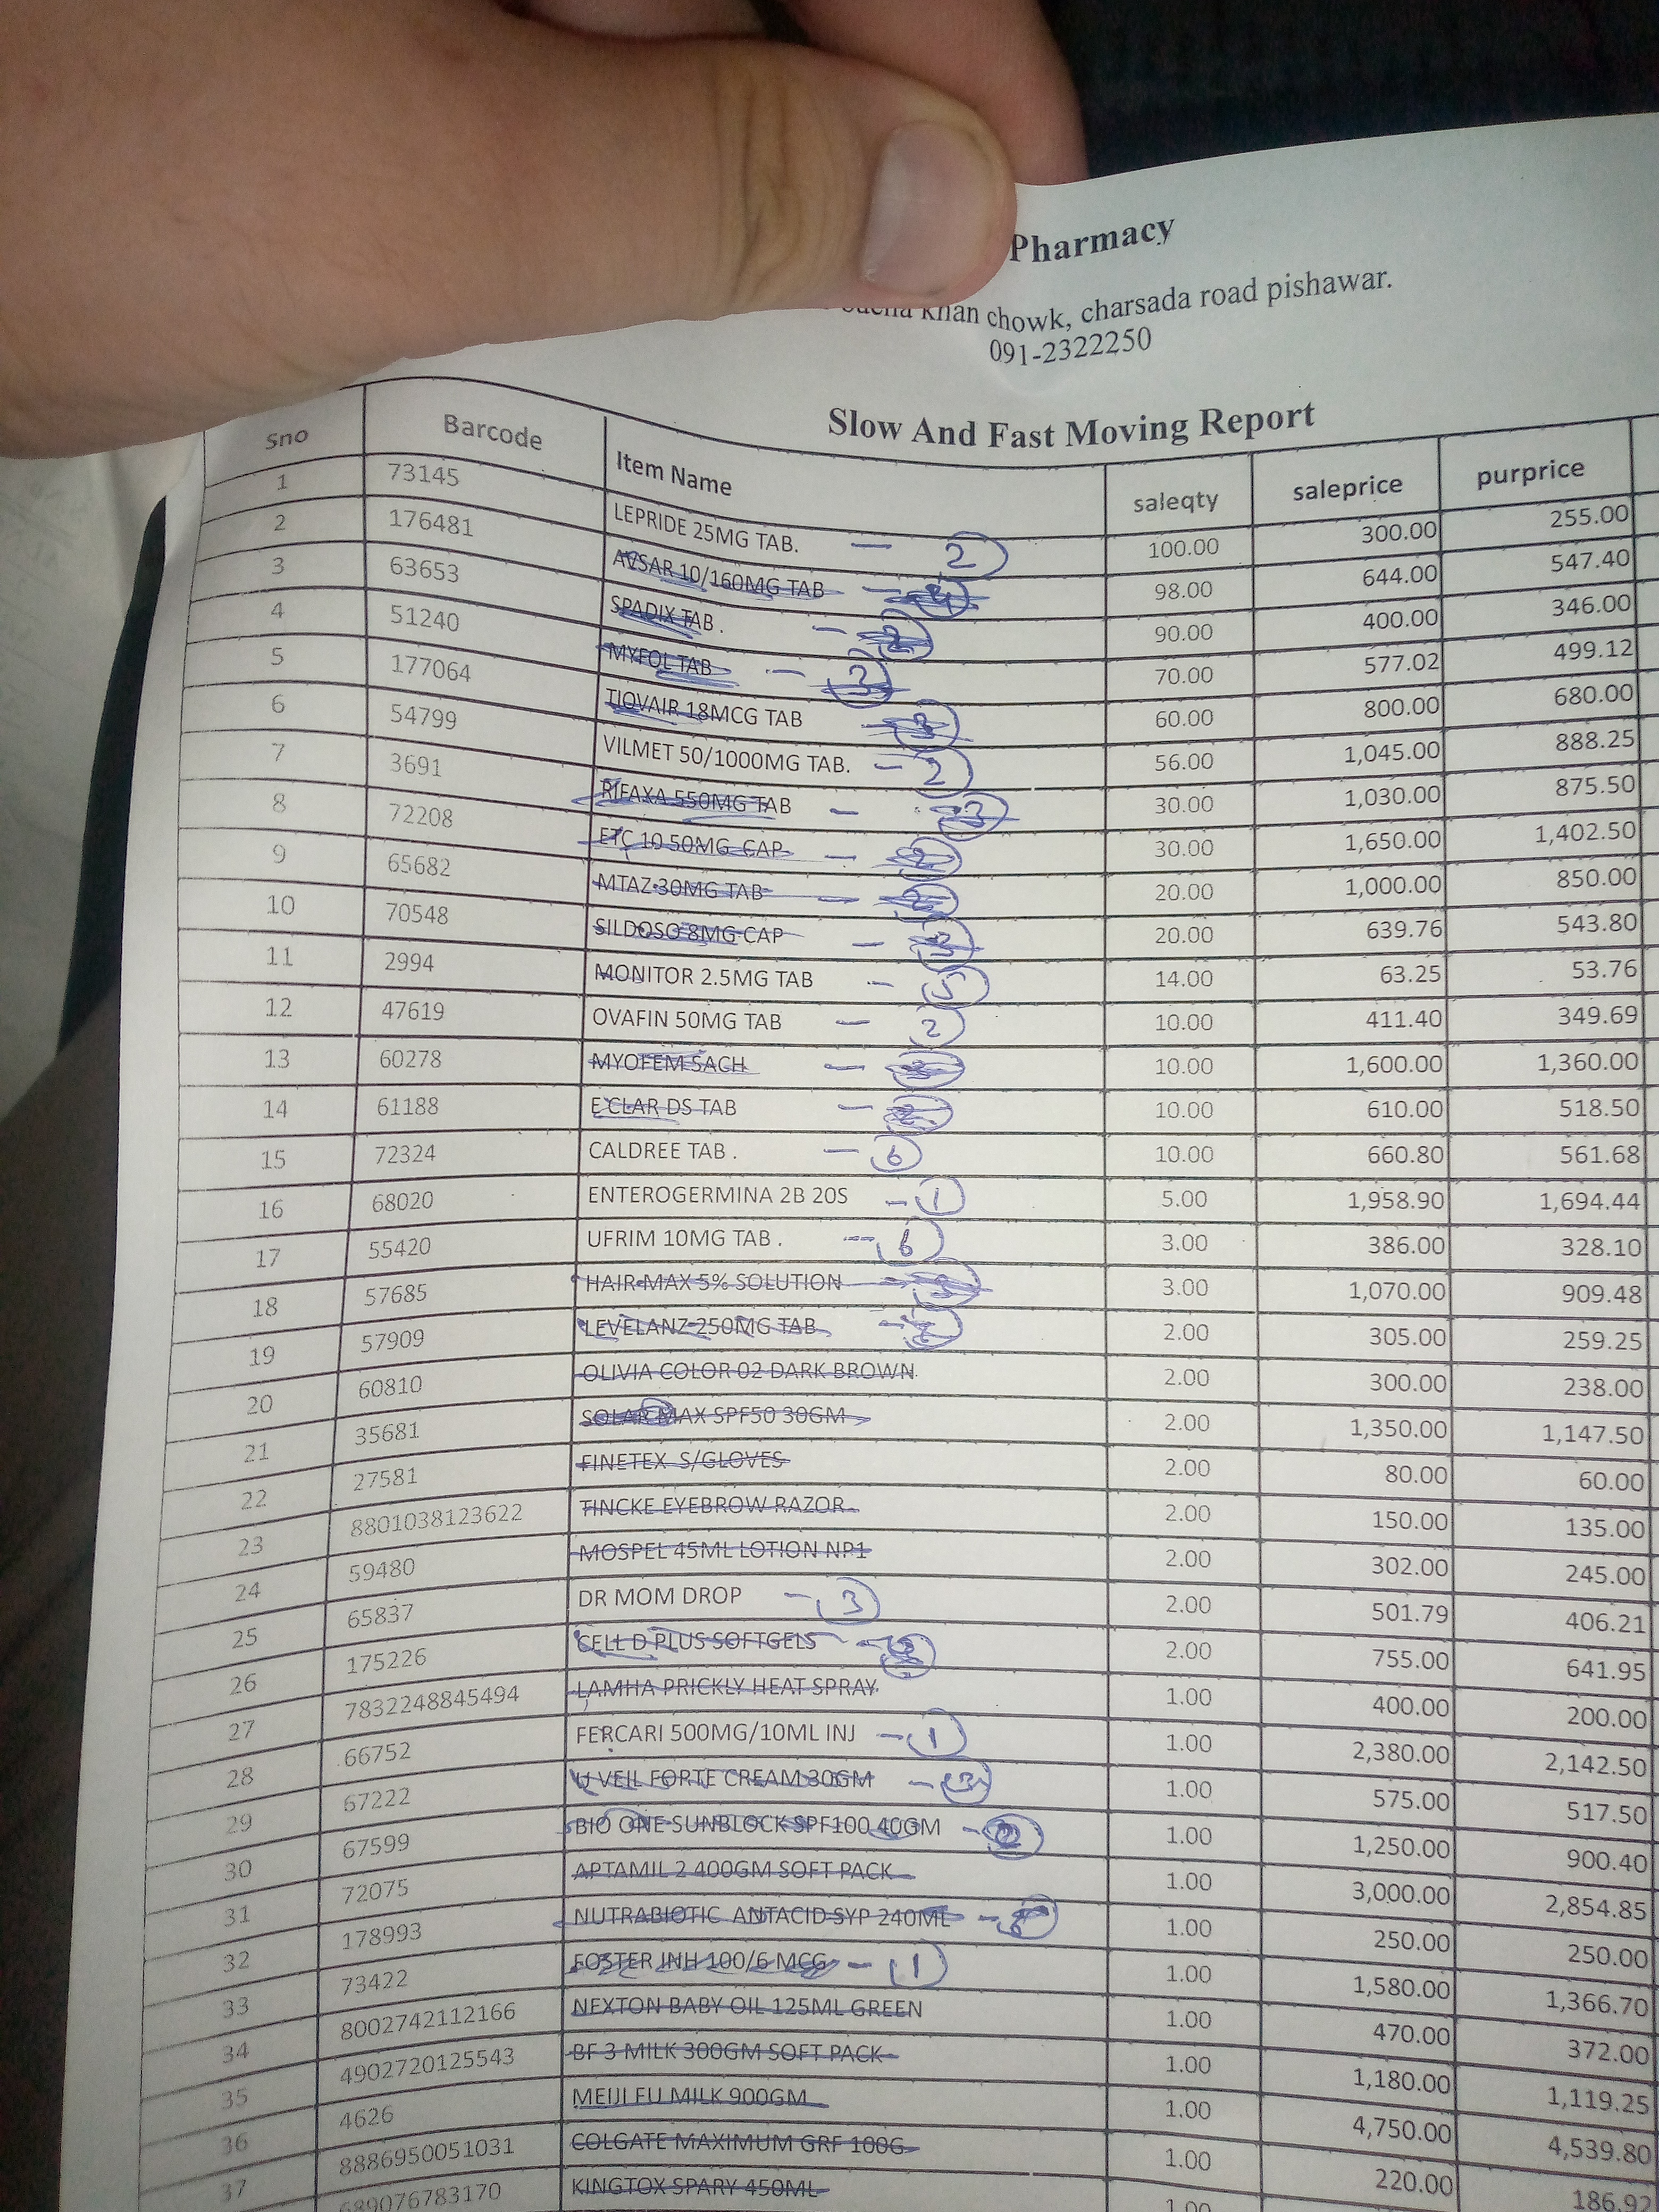 Pharmacy
khan chowk, charsada road pishawar.
091-2322250
Slow And Fast Moving Report
Sno Barcode Item Name saleqty saleprice purprice
1 73145 LEPRIDE 25MG TAB. — 2 100.00 300.00 255.00
2 176481 AVSAR 10/160MG TAB — 98.00 644.00 547.40
3 63653 SPADIX TAB . — 2 90.00 400.00 346.00
4 51240 MYFOL TAB — 3 70.00 577.02 499.12
5 177064 TIOVAIR 18MCG TAB — 3 60.00 800.00 680.00
6 54799 VILMET 50/1000MG TAB. — 2 56.00 1,045.00 888.25
7 3691 RIFAXA 550MG TAB — 3 30.00 1,030.00 875.50
8 72208 ETC 10 50MG CAP — 2 30.00 1,650.00 1,402.50
9 65682 MTAZ 30MG TAB — 20.00 1,000.00 850.00
10 70548 SILDOSO 8MG CAP — 20.00 639.76 543.80
11 2994 MONITOR 2.5MG TAB — 5 14.00 63.25 53.76
12 47619 OVAFIN 50MG TAB — 2 10.00 411.40 349.69
13 60278 MYOFEM SACH — 10.00 1,600.00 1,360.00
14 61188 ECLAR DS TAB — 2 10.00 610.00 518.50
15 72324 CALDREE TAB . — 6 10.00 660.80 561.68
16 68020 ENTEROGERMINA 2B 20S — 1 5.00 1,958.90 1,694.44
17 55420 UFRIM 10MG TAB . — 6 3.00 386.00 328.10
18 57685 HAIR MAX 5% SOLUTION — 3 3.00 1,070.00 909.48
19 57909 LEVELANZ 250MG TAB — 2.00 305.00 259.25
20 60810 OLIVIA COLOR 02 DARK BROWN 2.00 300.00 238.00
21 35681 SOLAR MAX SPF50 30GM 2.00 1,350.00 1,147.50
22 27581 FINETEX S/GLOVES 2.00 80.00 60.00
23 8801038123622 TINCKE EYEBROW RAZOR 2.00 150.00 135.00
24 59480 MOSPEL 45ML LOTION NP1 2.00 302.00 245.00
25 65837 DR MOM DROP — 3 2.00 501.79 406.21
26 175226 CELL D PLUS SOFTGELS — 2.00 755.00 641.95
27 7832248845494 LAMHA PRICKLY HEAT SPRAY 1.00 400.00 200.00
28 66752 FERCARI 500MG/10ML INJ — 1 1.00 2,380.00 2,142.50
29 67222 U VEIL FORTE CREAM 30GM — 3 1.00 575.00 517.50
30 67599 BIO ONE SUNBLOCK SPF100 40GM — 2 1.00 1,250.00 900.40
31 72075 APTAMIL 2 400GM SOFT PACK 1.00 3,000.00 2,854.85
32 178993 NUTRABIOTIC ANTACID SYP 240ML — 1.00 250.00 250.00
33 73422 FOSTER INH 100/6 MCG — 1 1.00 1,580.00 1,366.70
34 8002742112166 NEXTON BABY OIL 125ML GREEN 1.00 470.00 372.00
35 4902720125543 BF 3 MILK 300GM SOFT PACK 1.00 1,180.00 1,119.25
36 4626 MEIJI FU MILK 900GM 1.00 4,750.00 4,539.80
37 8886950051031 COLGATE MAXIMUM GRF 100G 1.00 220.00 186.92
689076783170 KINGTOX SPARY 450ML 1.00